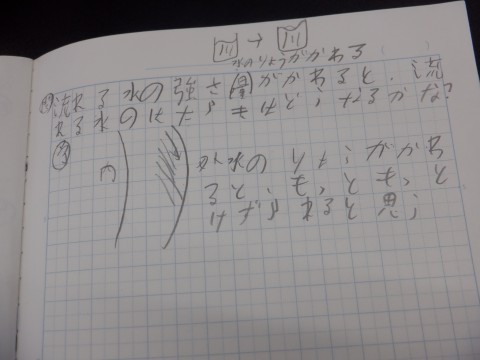 川 → 川
水のりょうがかわる
流れる水の強さ量がかわると、流
れる水のはたらきはどうなるかな?
内 外水のりょうがかわ
ると、もっともっと
けずられると思う